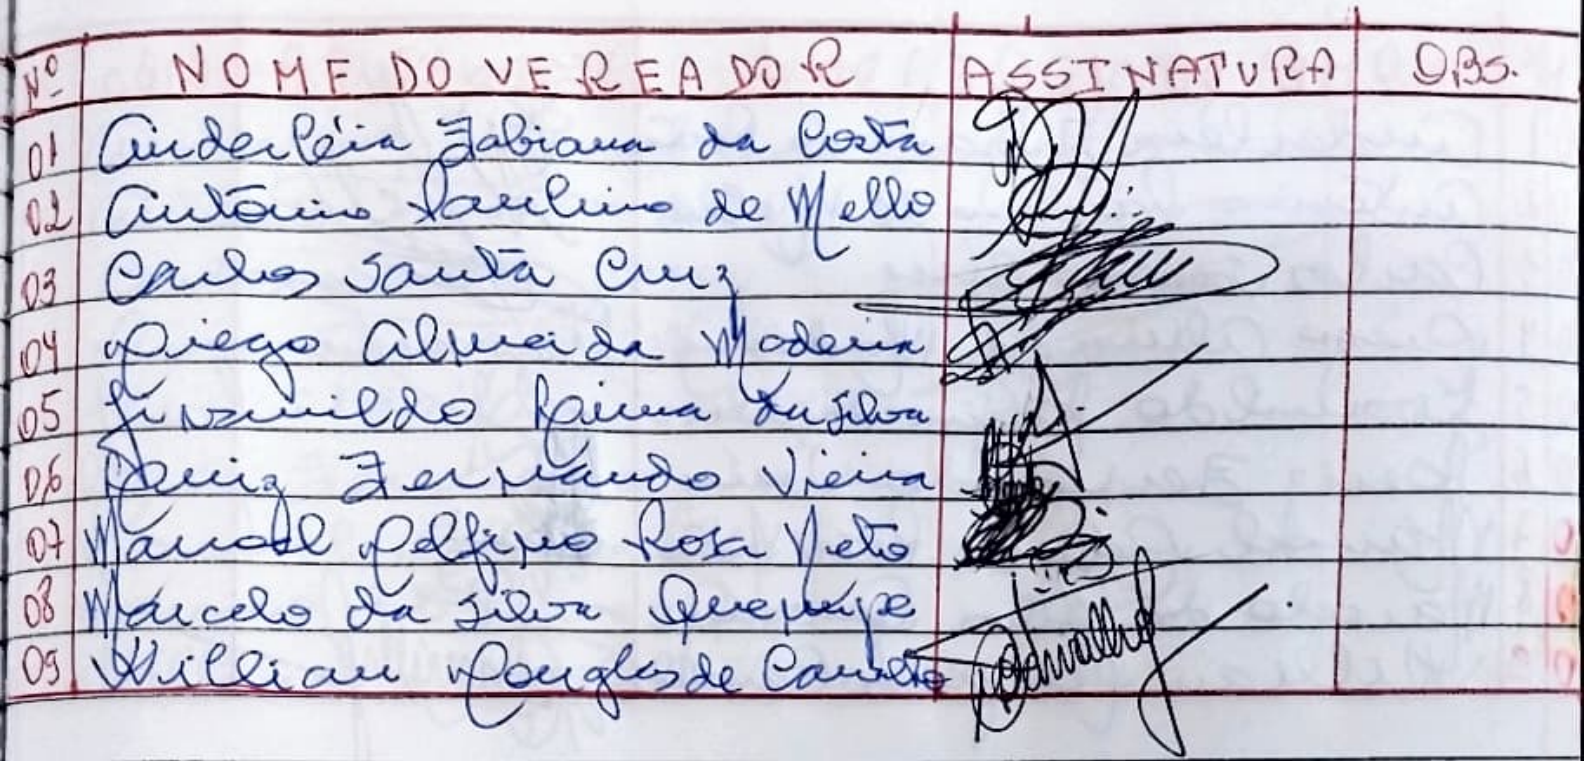 Nº NOME DO VEREADOR ASSINATURA OBS.
01 Cinderléia Fabiana da Costa
02 Antônio Paulino de Mello
03 Carlos Santa Cruz
04 Diego Almeida Madeira
05 da Silva
06 Luiz Fernando Vieira
07 Manoel Delfino Rosa Neto
08 Marcelo da Silva
09 Willian Douglas de Carvalho